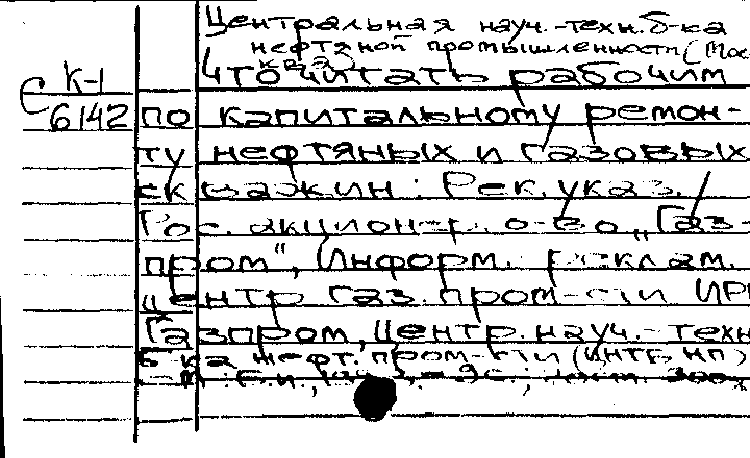 Центральная науч.-техн. б-ка
нефтяной промышленности (Мос
ква)
Что читать рабочим
К-1
С 6142
по капитальному ремон-
ту нефтяных и газовых
скважин: Рек. указ. /
Рос. акцион-р. о-во „Газ-
пром", Информ. реклам.
центр газ. пром-сти ИРЦ
Газпром, Центр. науч.-техн
б-ка нефт. пром-сти (ЦНТБ НП)